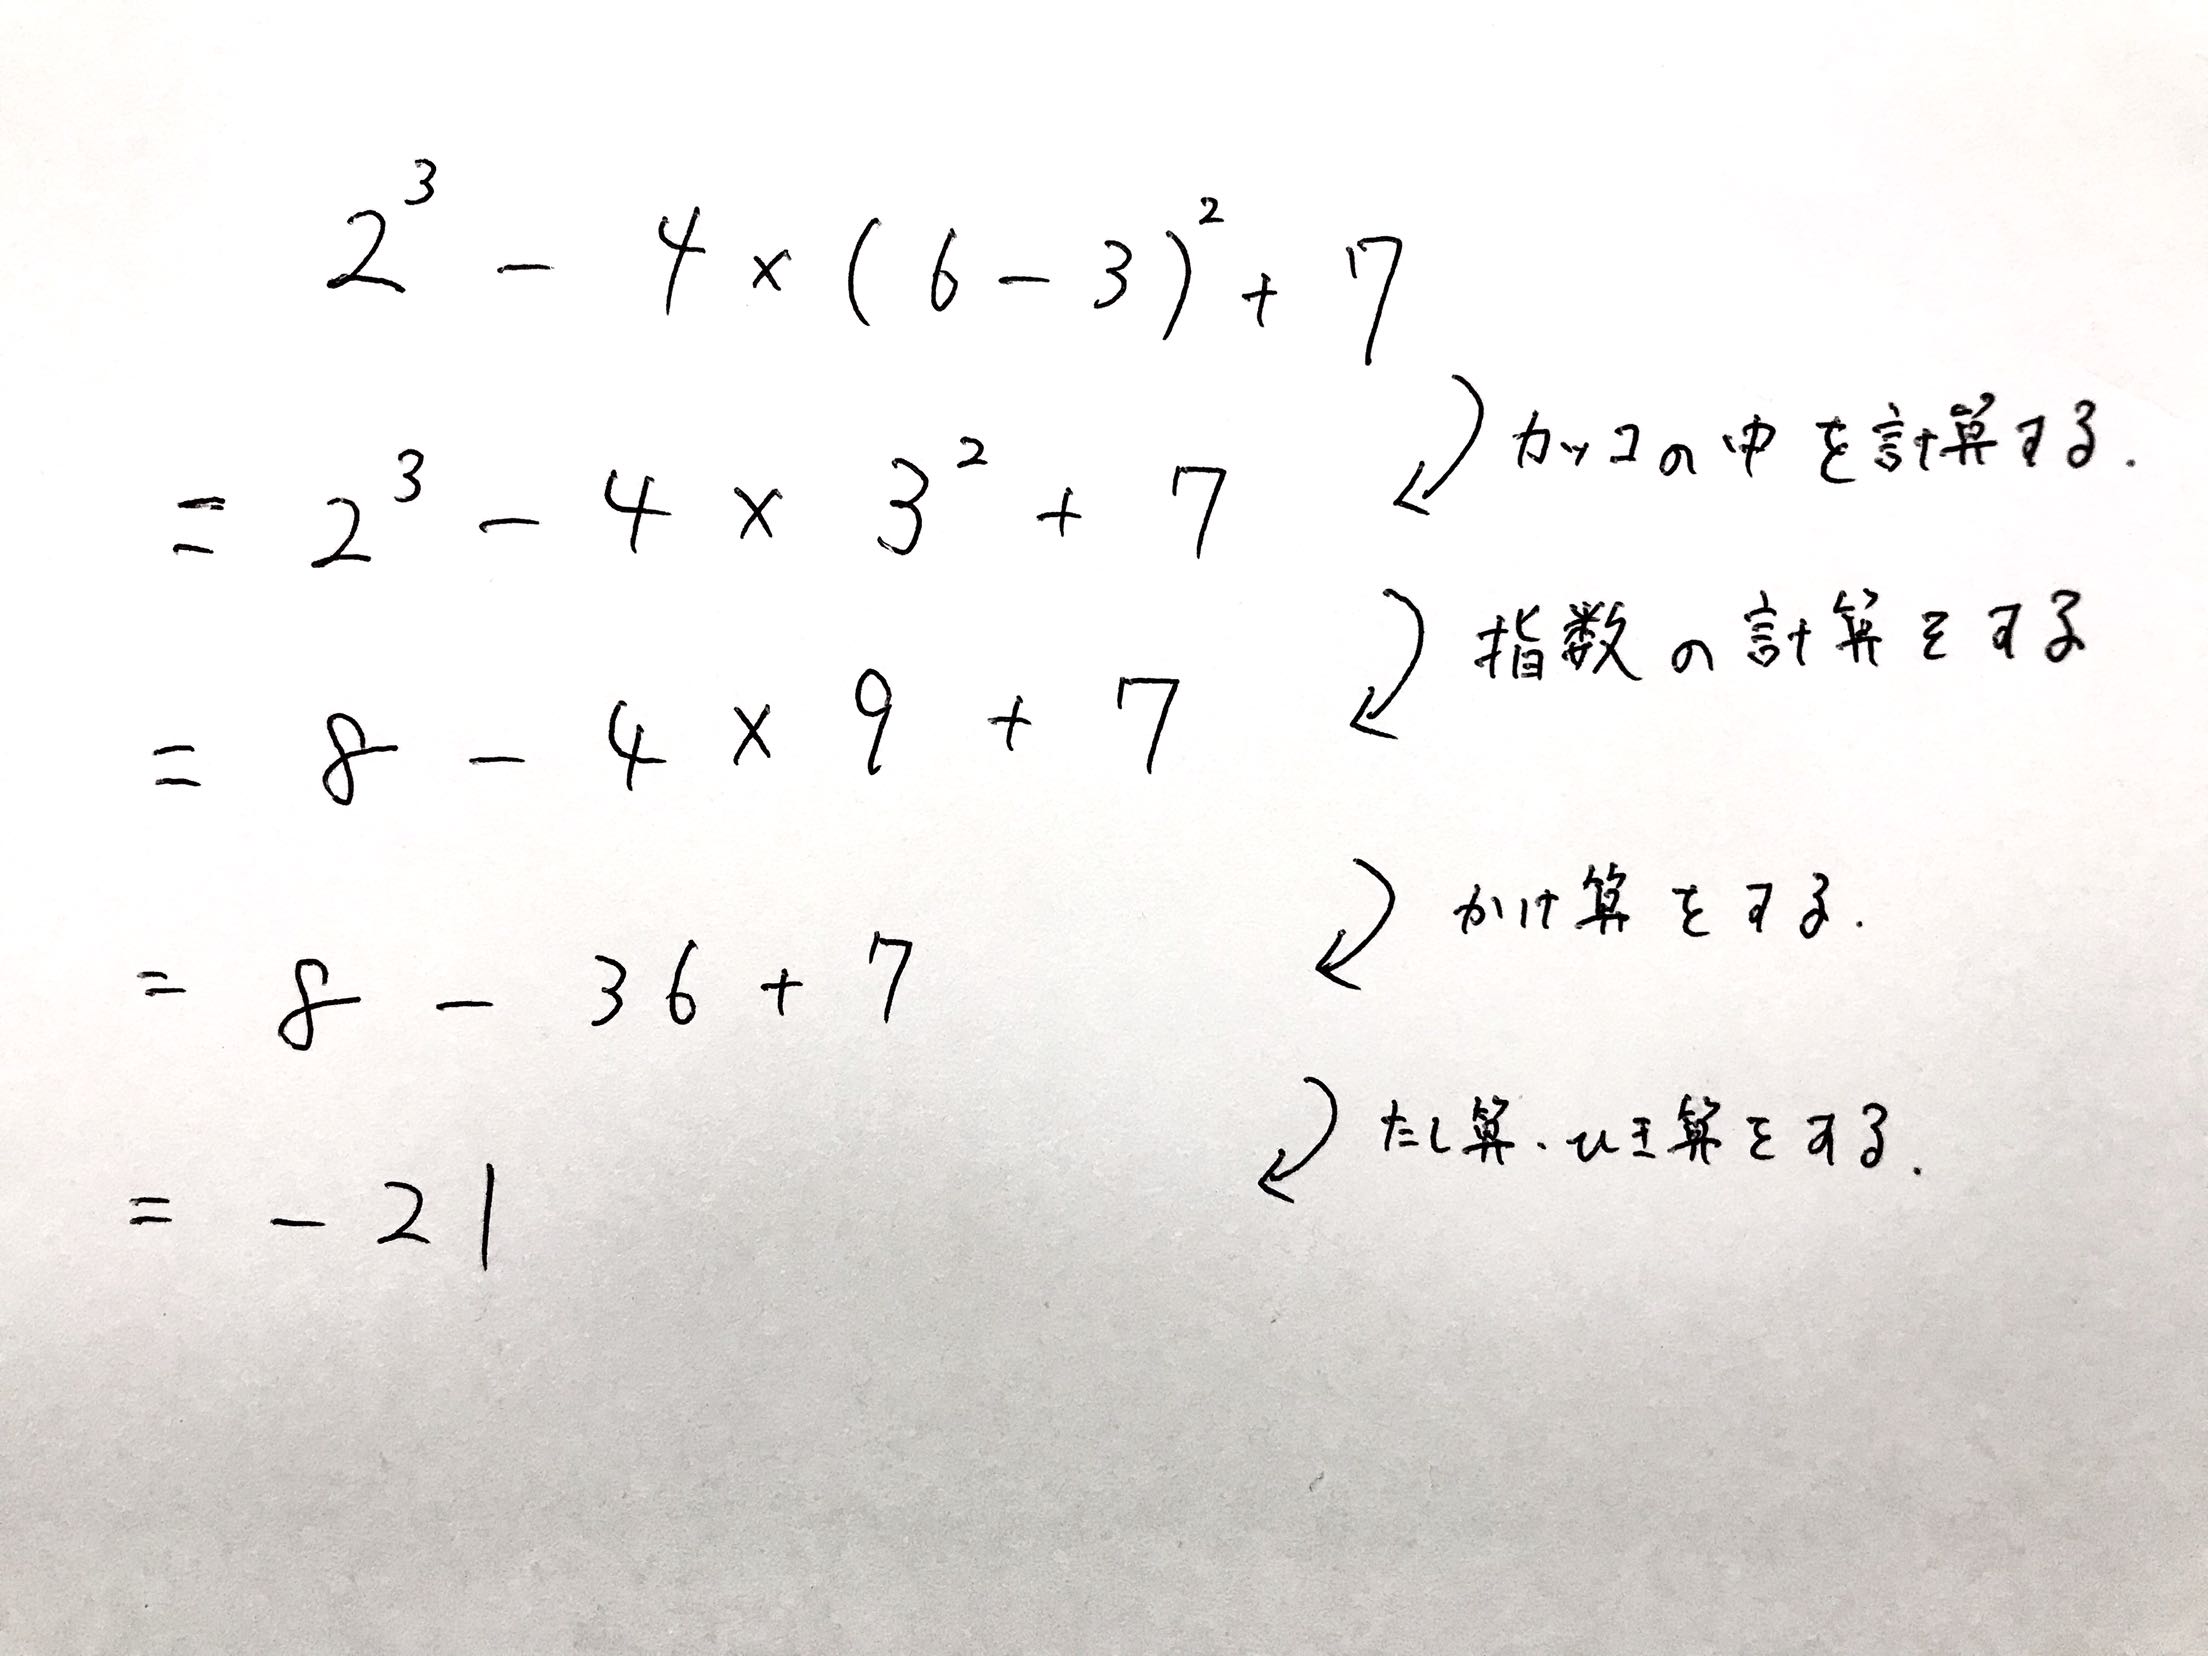 2³ - 4 × (6 - 3)² + 7
カッコの中を計算する.
= 2³ - 4 × 3² + 7
指数の計算をする
= 8 - 4 × 9 + 7
かけ算をする.
= 8 - 36 + 7
たし算・ひき算をする.
= -21